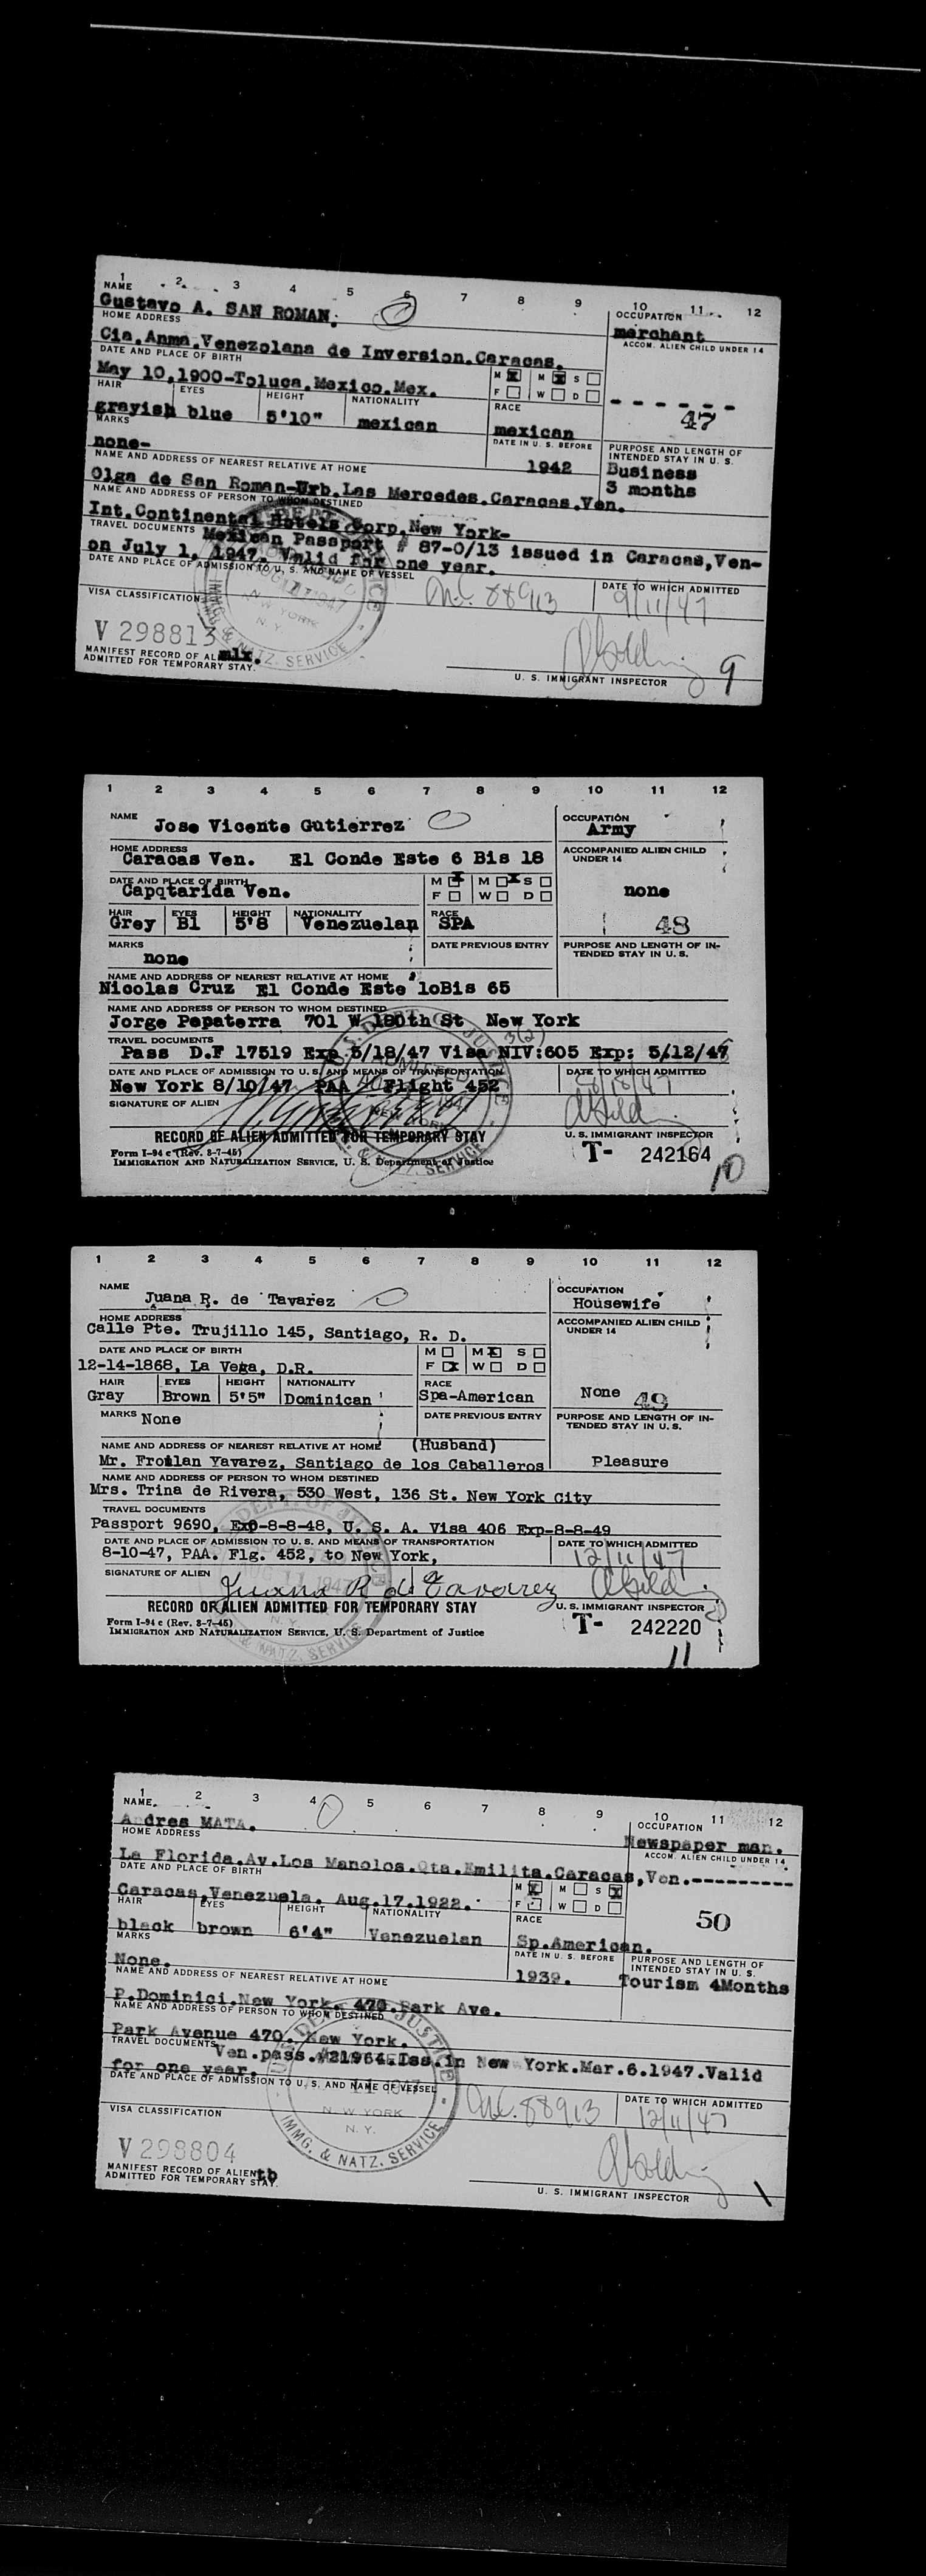 1 2 3 4 5 6 7 8 9 10 11 12
NAME OCCUPATION
Gustavo A. SAN ROMAN. merchant
HOME ADDRESS ACCOM. ALIEN CHILD UNDER 14
Cia.Anma.Venezolana de Inversion.Caracas.
DATE AND PLACE OF BIRTH M X M X S
May 10,1900-Toluca.Mexico.Mex. F W D - - - - - -
HAIR EYES HEIGHT NATIONALITY RACE 47
grayish blue 5'10" mexican mexican
MARKS DATE IN U. S. BEFORE PURPOSE AND LENGTH OF INTENDED STAY IN U. S.
none- 1942 Business
NAME AND ADDRESS OF NEAREST RELATIVE AT HOME 3 months
Olga de San Roman-Urb.Las Mercedes.Caracas.Ven.
NAME AND ADDRESS OF PERSON TO WHOM DESTINED
Int.Continental Hotels Corp.New York-
TRAVEL DOCUMENTS Mexican Passport # 87-0/13 issued in Caracas,Ven-
on July 1, 1947. Valid for one year.
DATE AND PLACE OF ADMISSION TO U. S. AND NAME OF VESSEL DATE TO WHICH ADMITTED
88913 9/11/47
VISA CLASSIFICATION
NEW YORK
N. Y.
IMMG. & NATZ. SERVICE
V 298813 mlr.
MANIFEST RECORD OF ALIEN
ADMITTED FOR TEMPORARY STAY. U. S. IMMIGRANT INSPECTOR 9
1 2 3 4 5 6 7 8 9 10 11 12
NAME Jose Vicente Gutierrez OCCUPATION Army
HOME ADDRESS ACCOMPANIED ALIEN CHILD UNDER 14
Caracas Ven. El Conde Este 6 Bis 18
DATE AND PLACE OF BIRTH M X M X S
Capqtarida Ven. F W D none
HAIR EYES HEIGHT NATIONALITY RACE
Grey Bl 5'8 Venezuelan SPA 48
MARKS DATE PREVIOUS ENTRY PURPOSE AND LENGTH OF INTENDED STAY IN U. S.
none
NAME AND ADDRESS OF NEAREST RELATIVE AT HOME
Nicolas Cruz El Conde Este loBis 65
NAME AND ADDRESS OF PERSON TO WHOM DESTINED
Jorge Pepaterra 701 W 180th St New York
TRAVEL DOCUMENTS
Pass D.F 17519 Exp 5/18/47 Visa NIV:605 Exp: 5/12/47
DATE AND PLACE OF ADMISSION TO U. S. AND MEANS OF TRANSPORTATION DATE TO WHICH ADMITTED
New York 8/10/47 PAA Flight 452
SIGNATURE OF ALIEN
RECORD OF ALIEN ADMITTED FOR TEMPORARY STAY U. S. IMMIGRANT INSPECTOR
Form I-94 c (Rev. 8-7-45) T- 242164
IMMIGRATION AND NATURALIZATION SERVICE, U. S. Department of Justice 10
1 2 3 4 5 6 7 8 9 10 11 12
NAME Juana R. de Tavarez OCCUPATION Housewife
HOME ADDRESS ACCOMPANIED ALIEN CHILD UNDER 14
Calle Pte. Trujillo 145, Santiago, R. D.
DATE AND PLACE OF BIRTH M M X S
12-14-1868, La Vega, D.R. F X W D
HAIR EYES HEIGHT NATIONALITY RACE None 49
Gray Brown 5'5" Dominican Spa-American
MARKS None DATE PREVIOUS ENTRY PURPOSE AND LENGTH OF INTENDED STAY IN U. S.
NAME AND ADDRESS OF NEAREST RELATIVE AT HOME (Husband)
Mr. Froilan Yavarez, Santiago de los Caballeros Pleasure
NAME AND ADDRESS OF PERSON TO WHOM DESTINED
Mrs. Trina de Rivera, 530 West, 136 St. New York City
TRAVEL DOCUMENTS
Passport 9690, Exp-8-8-48, U. S. A. Visa 406 Exp-8-8-49
DATE AND PLACE OF ADMISSION TO U. S. AND MEANS OF TRANSPORTATION DATE TO WHICH ADMITTED
8-10-47, PAA. Flg. 452, to New York, 12/11/47
SIGNATURE OF ALIEN Juana R de Tavarez
RECORD OF ALIEN ADMITTED FOR TEMPORARY STAY U. S. IMMIGRANT INSPECTOR
Form I-94 c (Rev. 8-7-45) T- 242220
IMMIGRATION AND NATURALIZATION SERVICE, U. S. Department of Justice
11
1 2 3 4 5 6 7 8 9 10 11 12
NAME OCCUPATION
Andres MATA. Newspaper man.
HOME ADDRESS ACCOM. ALIEN CHILD UNDER 14
La Florida.Av.Los Manolos.Qta.Emilita.Caracas,Ven.---------
DATE AND PLACE OF BIRTH M X M S X
Caracas,Venezuela. Aug.17.1922. F W D 50
HAIR EYES HEIGHT NATIONALITY RACE
black brown 6'4" Venezuelan Sp.American.
MARKS DATE IN U. S. BEFORE PURPOSE AND LENGTH OF INTENDED STAY IN U. S.
None. 1939. Tourism 4Months
NAME AND ADDRESS OF NEAREST RELATIVE AT HOME
P.Dominici.New York. 470.Park Ave.
NAME AND ADDRESS OF PERSON TO WHOM DESTINED
Park Avenue 470. New York.
TRAVEL DOCUMENTS Ven.pass.#21964.Iss.in New York.Mar.6.1947.Valid
for one year.
DATE AND PLACE OF ADMISSION TO U. S. AND NAME OF VESSEL DATE TO WHICH ADMITTED
88913 12/11/47
VISA CLASSIFICATION
NEW YORK
N. Y.
IMMG. & NATZ. SERVICE
V 298804
MANIFEST RECORD OF ALIEN tb
ADMITTED FOR TEMPORARY STAY. U. S. IMMIGRANT INSPECTOR